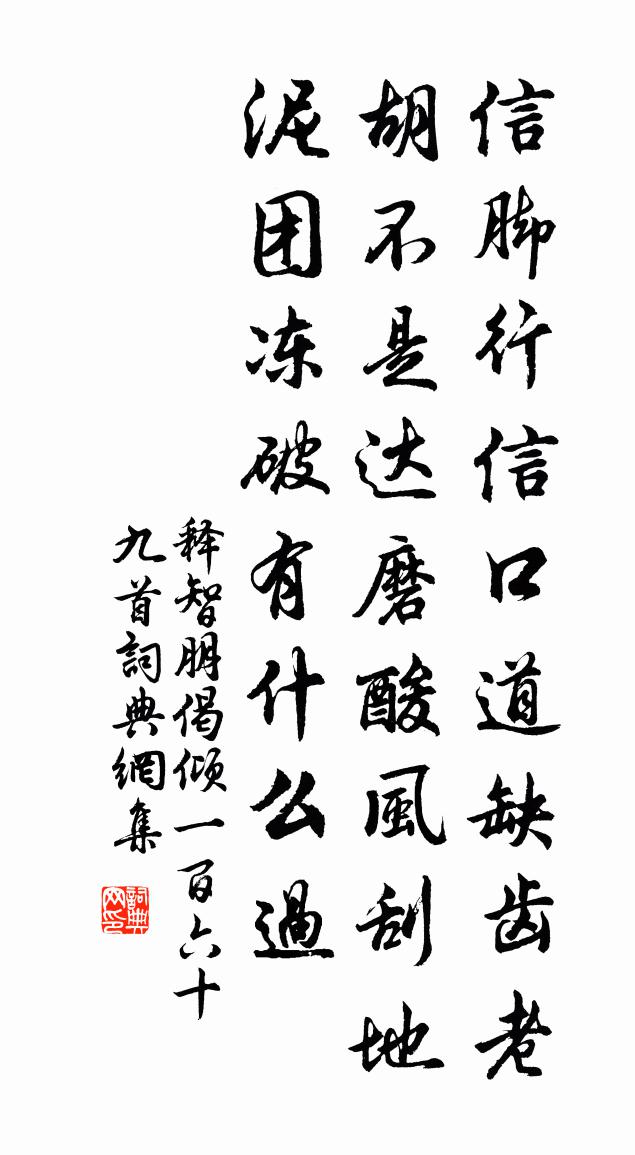 信脚行信口道缺齿老
胡不是达磨酸風刮地
泥团冻破有什么過
释智朋偈倾一百六十
九首詞典網集
詞典网印